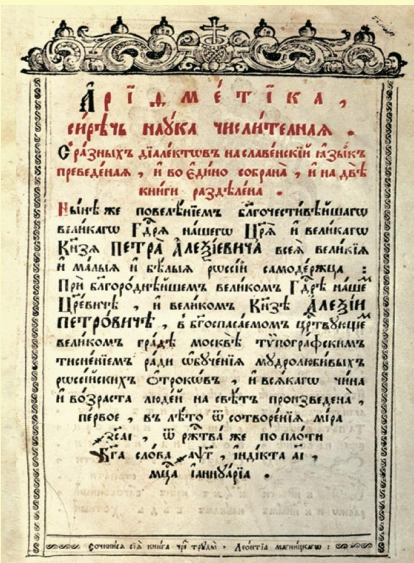 Арїѳме́тїка,
си́рѣчь наꙋ́ка числи́телнаѧ.
С̾ ра́зныхъ дїале́ктѡвъ на слове́нскїй ꙗ҆зы́къ
преведе́наѧ, и҆ во є҆ди́но собрана̀, и҆ на двѣ̀
кни́ги раздѣле́на.
Ны́нѣ же повелѣ́нїемъ бл҃гочести́вѣйшагѡ
вели́кагѡ Гдⷭ҇рѧ на́шегѡ Цр҃ѧ̀ и҆ вели́кагѡ
Кн҃зѧ ПЕТРА̀ АЛЕѮІ́ЕВИЧА всеѧ̀ вели́кїѧ
и҆ ма́лыѧ и҆ бѣ́лыѧ рѡссі́и самоде́ржца :
При бл҃горо́днѣйшемъ вели́комъ Гдⷭ҇рѣ на́шемъ
Цр҃е́вичѣ, и҆ вели́комъ Кн҃зѣ АЛЕѮІ́И
ПЕТРО́ВИЧѢ, в̾ бг҃оспаса́емомъ црⷭ҇твꙋющемъ
вели́комъ гра́дѣ москвѣ̀ тѷпогра́фскимъ
тисне́нїемъ ра́ди ѡ҆бꙋче́нїѧ мꙋдролюби́выхъ
рѡссі́йскихъ ѻ҆́трокѡвъ, и҆ всѧ́кагѡ чи́на
и҆ во́зраста люде́й на свѣ́тъ произведе́на,
пе́рвое, в̾ лѣ́то ѿ сотворе́нїѧ мі́ра
҂зс҃аі, ѿ рж҇тва̀ же по пло́ти
Бг҃а сло́ва ҂аѱ҃г, і҆нди́кта а҃і,
мцⷭ҇а і҆аннꙋа́рїа.
Сочини́сѧ сїѧ̀ кни́га чре́з̾ трꙋды̀ Лео́нтїа магни́цкагѡ :